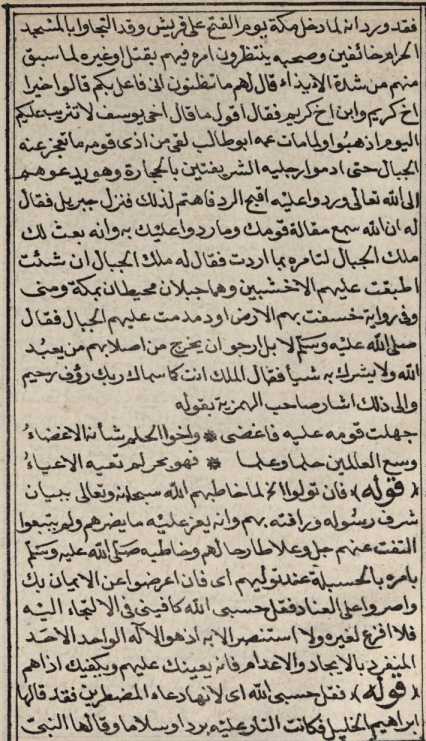 فقد ورد انه لما دخل مكة يوم الفتح على قريش وقد التجاوا بالمسجد
الحرام خائفين وصحبه ينتظرون امره فيهم بقتل اوغيره لما سبق
منهم من شدة الايذاء قال لهم ما تظنون انى فاعل بكم قالوا خيرا
اخ كريم وابن اخ كريم فقال اقول ما قال اخى يوسف لا تثريب عليكم
اليوم اذهبوا ولما مات عمه ابو طالب لقى من اذى قومه ما تعجز عنه
الجبال حتى ادموا رجليه الشريفتين بالحجارة وهو يدعوهم
الى الله تعالى وردوا عليه اقبح الرد فاهتم لذلك فنزل جبريل فقال
له ان الله سمع مقالة قومك وما ردوا عليك به وانه بعث لك
ملك الجبال لتامره بما اردت فقال له ملك الجبال ان شئت
اطبقت عليهم الاخشبين وهما جبلان محيطان بمكة ومنى
وفى رواية خسفت بهم الارض او دمدمت عليهم الجبال فقال
صلى الله عليه وسلم لا بل ارجو ان يخرج من اصلابهم من يعبد
الله ولا يشرك به شيأ فقال الملك انت كما سماك ربك رؤف رحيم
والى ذلك اشار صاحب الهمزية بقوله
جهلت قومه عليه فاغضى * واخوا الحلم شأنه الاغضاء
وسع العالمين حلما وعلما * فهو بحر لم تعيه الاعياء
(قوله) فان تولوا الخ لما خاطبهم الله سبحانه وتعالى ببيان
شرف رسوله ورافته بهم وانه يعز عليه ما يضرهم ولم يتبعوا
التفت عنهم جل وعلا طارحا لهم وخاطبه صلى الله عليه وسلم
بامره بالحسبلة عند توليهم اى فان اعرضوا عن الايمان بك
واصروا على العناد فقل حسبى الله كافينى فى الالتجاء اليه
فلا افزع لغيره ولا استنصر الا به اذ هو الاله الواحد الاحد
المنفرد بالايجاد والاعدام فانه يعينك عليهم ويكفيك اذاهم
(قوله) فقل حسبى الله اى لانها دعاء المضطرين فقد قالها
ابراهيم الخليل فكانت النار عليه بردا وسلاما وقالها النبى